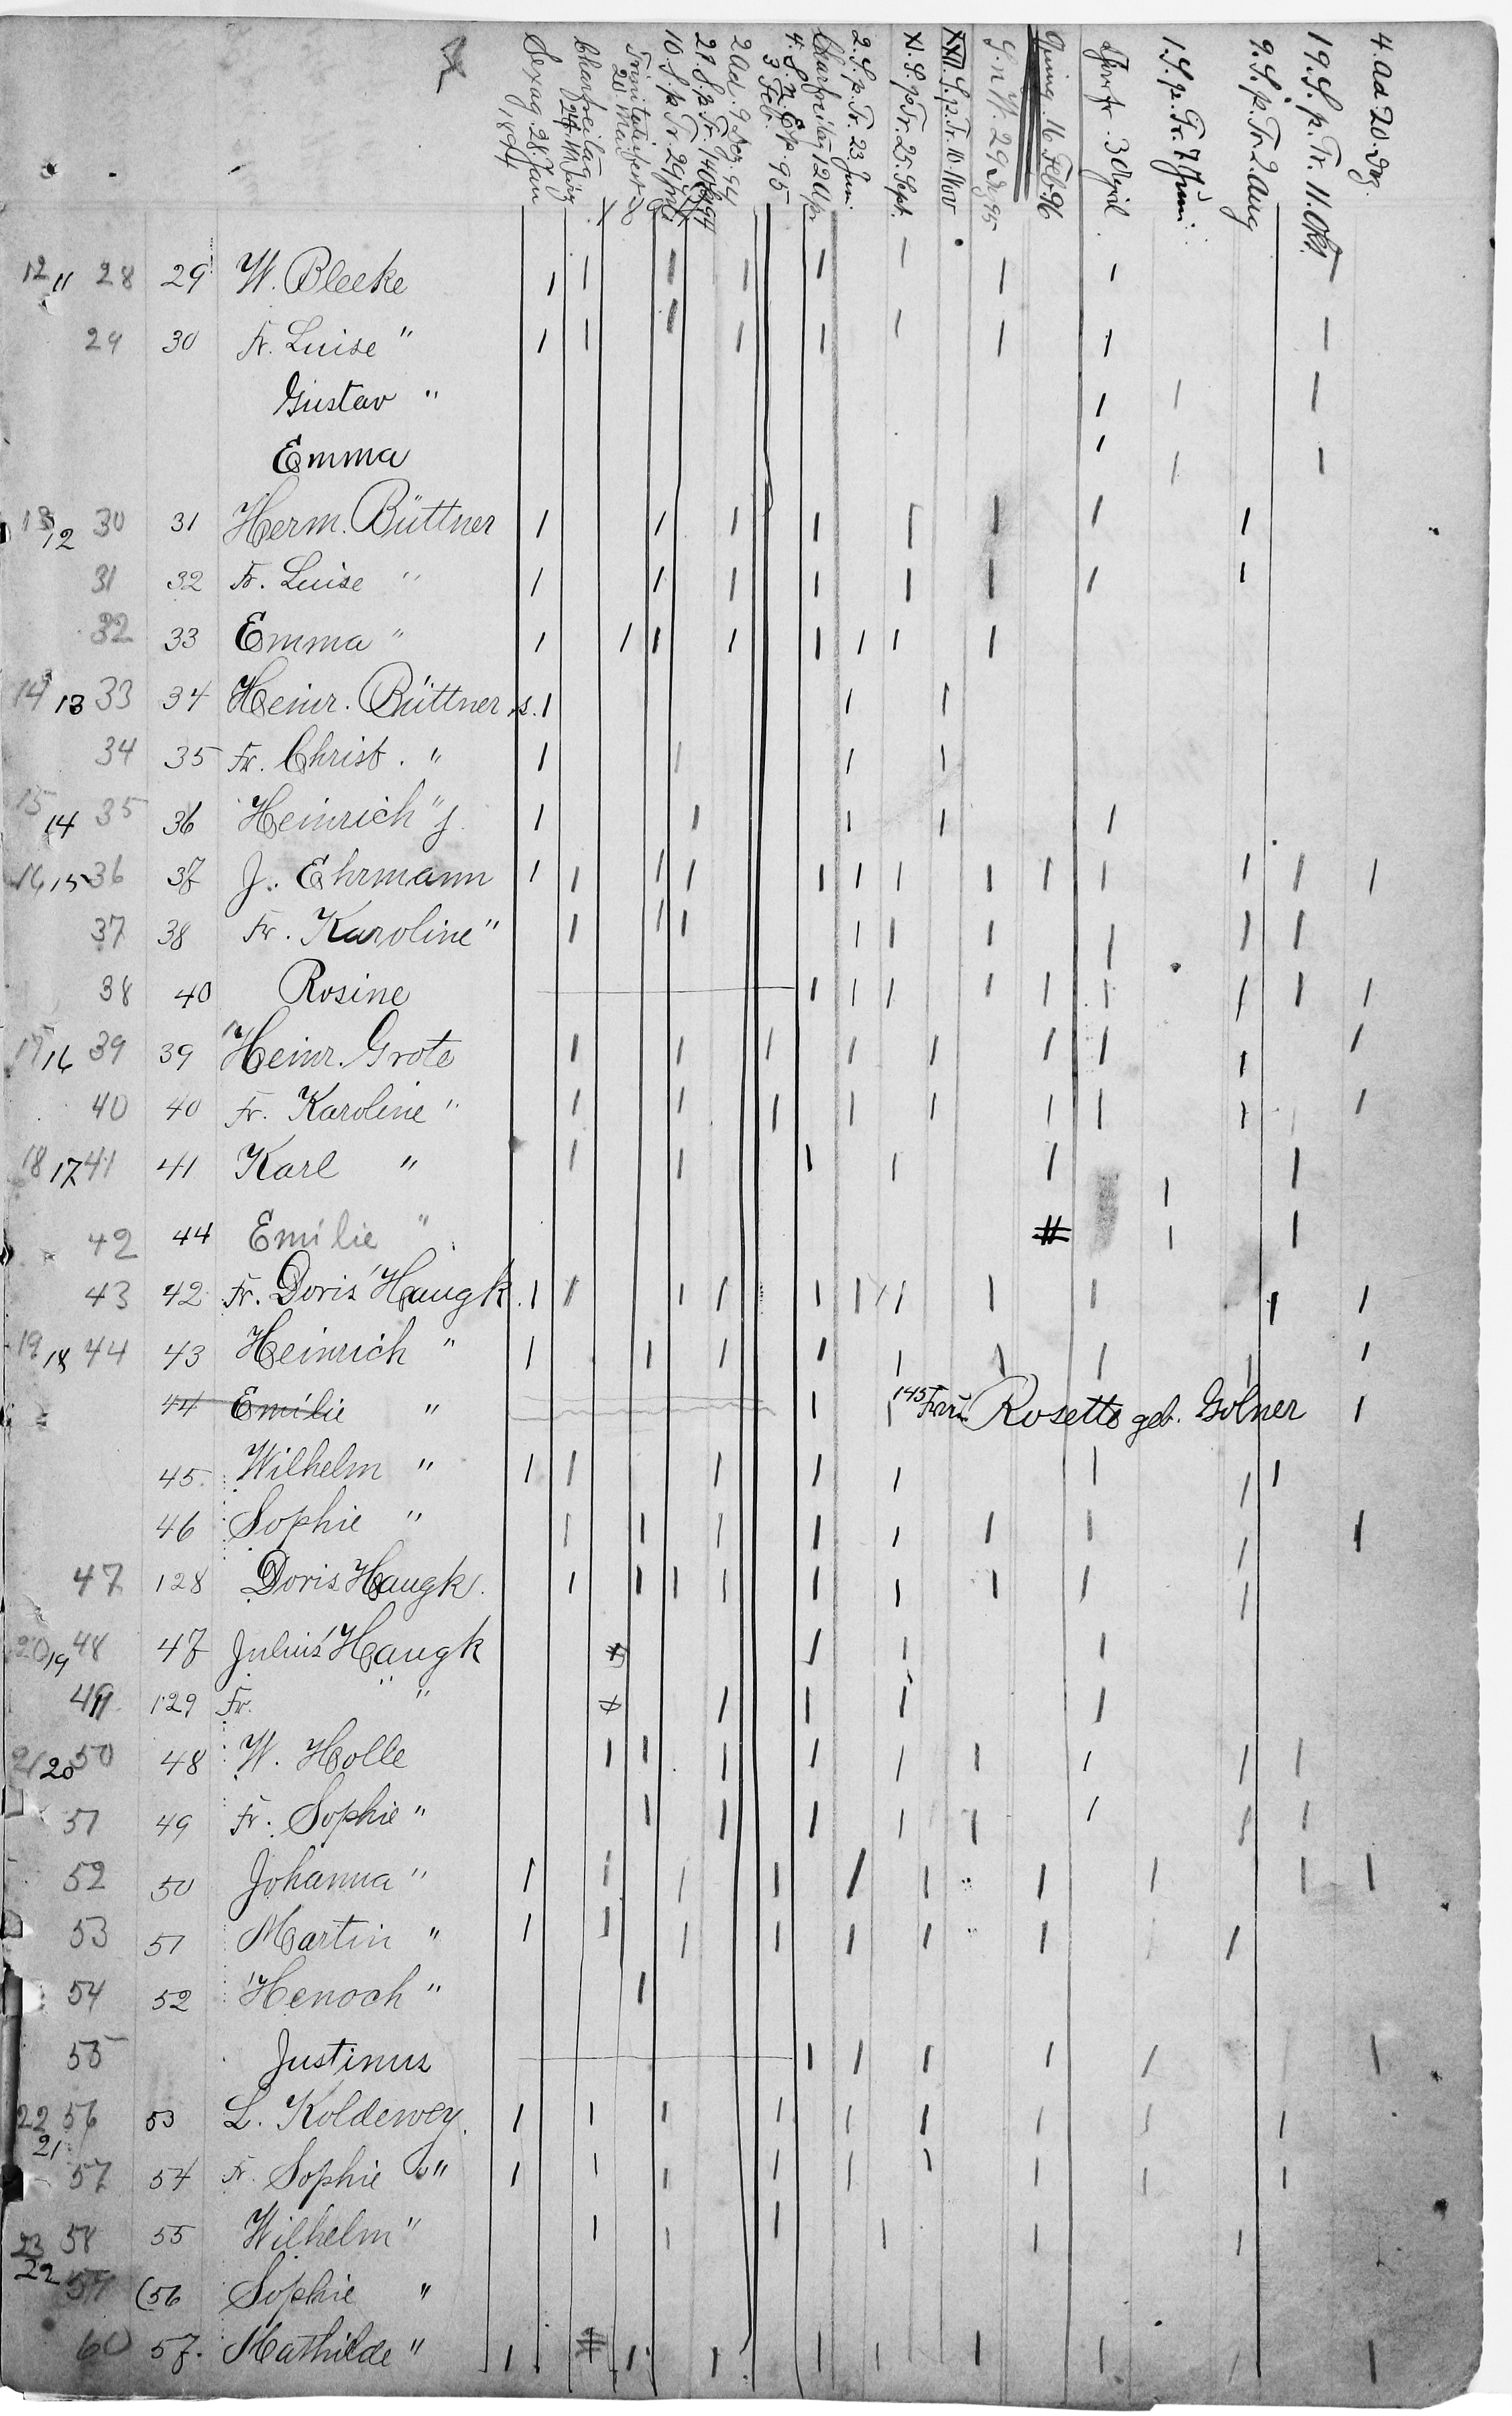 Sexag. 28. Jan 1894
Charfreitag 24. März
Trinitatisfest 20. Mai
10. S. p. Tr. 29 Juli
21. S. p. Tr. 14 Okt 94
2 Ad. 9 Dez. 94
4. S. n. Ep. 95 3. Feb.
Charfreitag 12 Ap.
2. S. p. Tr. 23. Juni
XI. S. p. Tr. 25. Sept.
XXII. S. p. Tr. 10 Nov
S. n. W. 29 Dz 95
16 Feb 96
3 April
1 S. p. Tr. 7 Juni
9. S. p. Tr. 2 Aug
19. S. p. Tr. 11. Okt
4. Ad. 20. Dez.
12 11 28 29 W. Bleeke
29 30 Fr. Luise "
Gustav "
Emma
13 12 30 31 Herm. Büttner
31 32 Fr. Luise "
32 33 Emma "
14 13 33 34 Heinr. Büttner s.
34 35 Fr. Christ. "
15 14 35 36 Heinrich " j.
16 15 36 37 J. Ehrmann
37 38 Fr. Karoline "
38 40 Rosine
17 16 39 39 Heinr. Grote
40 40 Fr. Karoline "
18 17 41 41 Karl "
42 44 Emilie "
43 42 Fr. Doris Haugk.
19 18 44 43 Heinrich "
44 Emilie " 145 Frau Rosette geb. Golner
45. Wilhelm "
46 Sophie "
47 128 Doris Haugk.
20 19 48 47 Julius Haugk
49 129 Fr. " "
21 20 50 48 W. Holle
51 49 Fr. Sophie "
52 50 Johanna "
53 51 Martin "
54 52 Henoch "
55 Justinus
22 21 56 53 L. Koldewey.
57 54 Fr. Sophie "
23 22 58 55 Wilhelm "
59 (56 Sophie "
60 57. Mathilde "